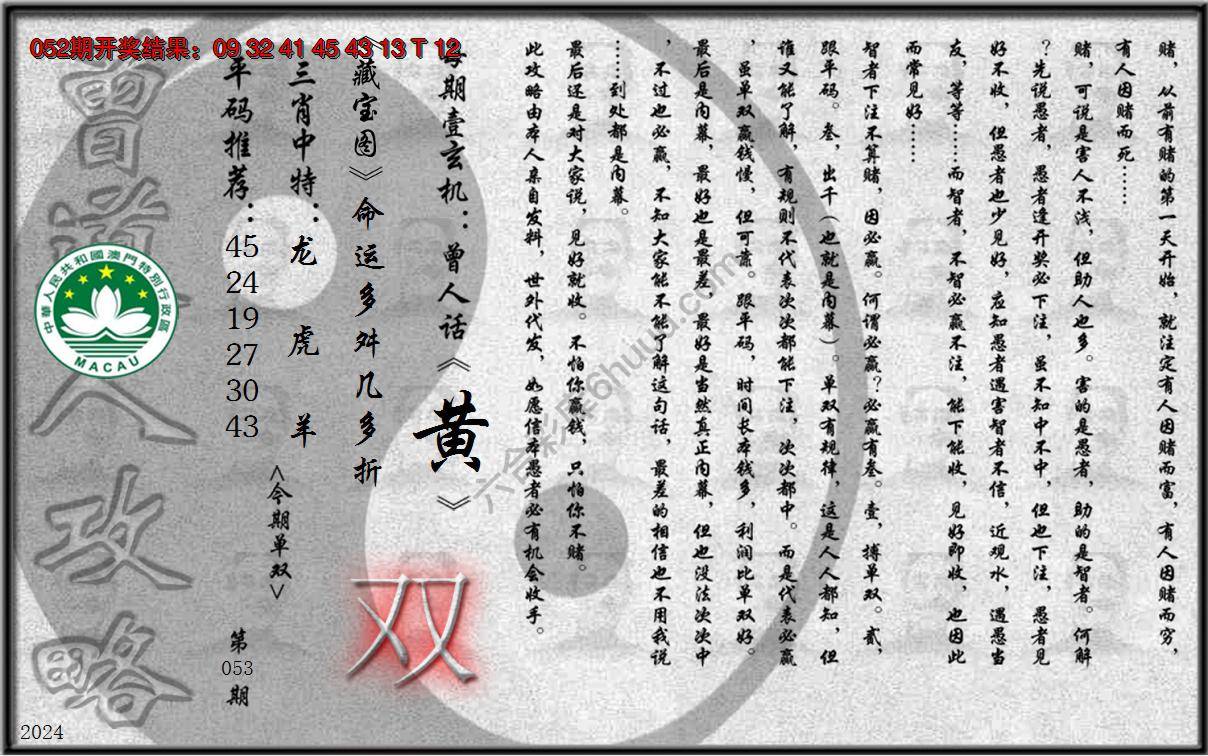 052期开奖结果：09 32 41 45 43 13 T 12
赌，从前有赌的第一天开始，就注定有人因赌而富，有人因赌而穷，
有人因赌而死……
赌，可说是害人不浅，但助人也多。害的是愚者，助的是智者。何解
？先说愚者，愚者逢开奖必下注，虽不知中不中，但也下注，愚者见
好不收，但愚者也少见好，应知愚者遇害智者不信，近观水，遇愚当
友，等等……而智者，不智必赢不注，能下能收，见好即收，也因此
而常见好……
智者下注不算赌，因必赢。何谓必赢？必赢有叁。壹，搏单双。贰，
跟平码。叁，出千（也就是内幕）。单双有规律，这是人人都知，但
谁又能了解，有规则不代表次次都能下注，次次都中。而是代表必赢
，虽单双赢钱慢，但可靠。跟平码，时间长本钱多，利润比单双好。
最后是内幕，最好也是最差，最好是当然真正内幕，但也没法次次中
，不过也必赢，不知大家能不能了解这句话，最差的相信也不用我说
……到处都是内幕。
最后还是对大家说，见好就收。不怕你赢钱，只怕你不赌。
此攻略由本人亲自发料，世外代发，如愿信本愚者必有机会收手。
每期壹玄机：曾人话《黄》
《藏宝图》命运多舛几多折
三肖中特：龙 虎 羊
平码推荐：
45
24
19
27
30
43
<今期单双>
双
第
053
期
曾道人攻略
中華人民共和國澳門特別行政區
MACAU
六合彩库6huuu.com
2024